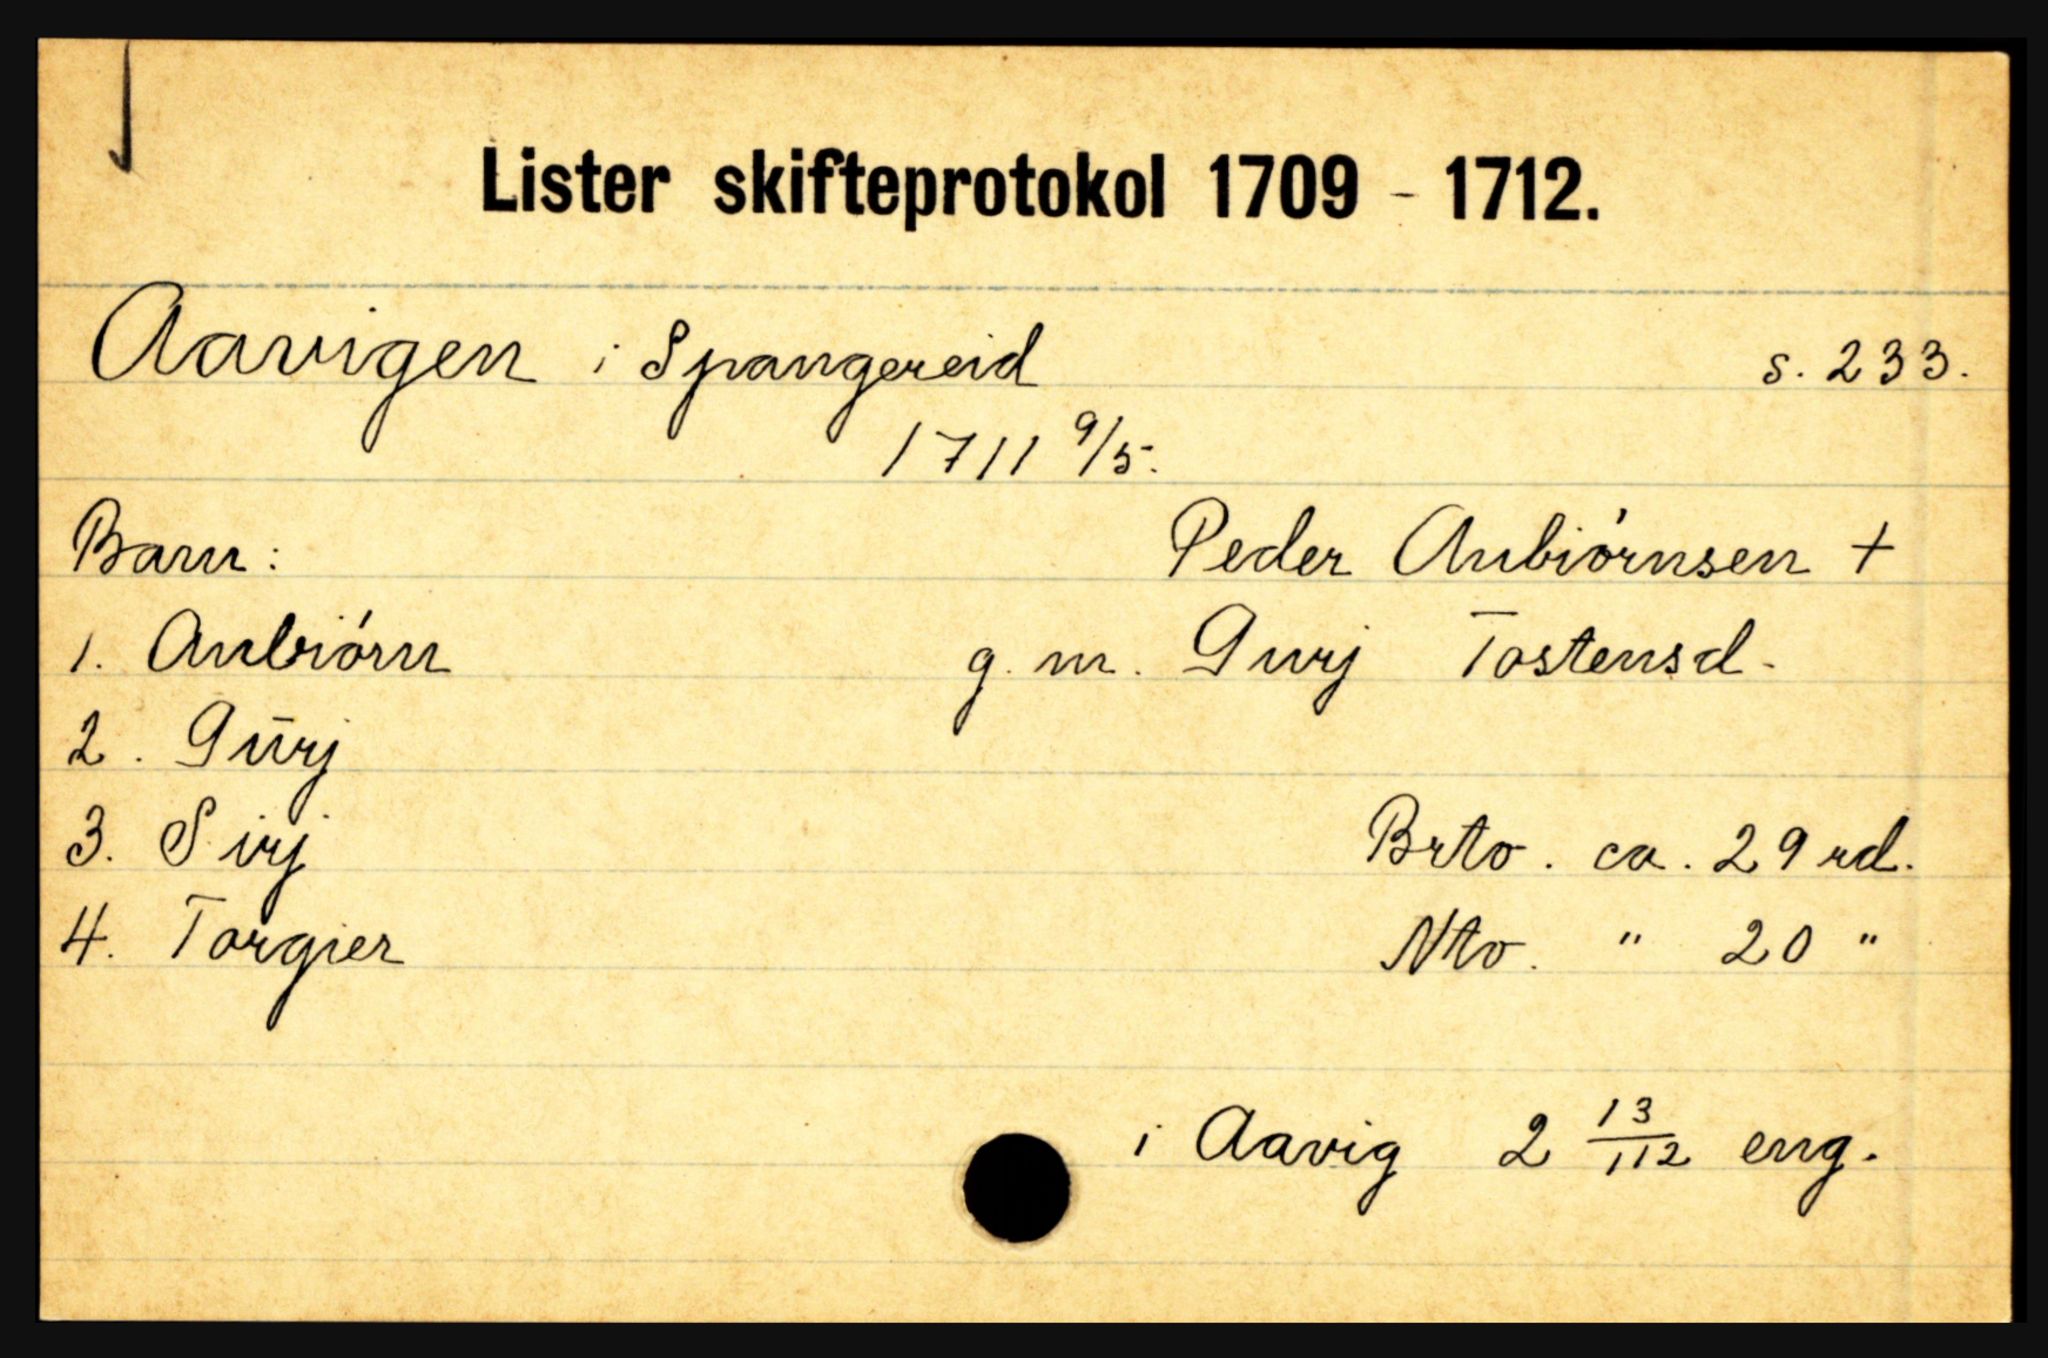 Lister skifteprotokol 1709 - 1712.
Aavigen i Spangereid s. 233.
1711 9/5.
Barn: Peder Anbiórnsen +
1. Anbiórn g. m. Gurj Tostensd.
2. Gūrj
3. Sirj Brto. ca. 29 rd.
4. Torgier Nto. " 20 "
i Aavig 2 13/112 eng.